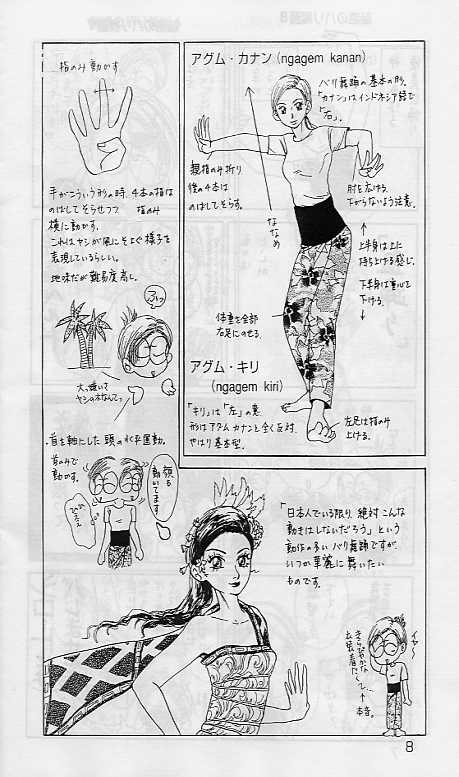 アグム・カナン (ngagem kanan)
バリ舞踊の基本の形。
「カナン」はインドネシア語で
「右」。
親指のみ折り
後の4本は
のばしてそらす。
ななめ
肘を広げる。
下がらないよう注意。
上半身は上に
持ち上げる感じ。
下半身は重心を
下げる。
体重を全部
右足にのせる。
アグム・キリ
(ngagem kiri)
「キリ」は「左」の意。
形はアグム カナンと全く反対。
やはり基本型。
左足は指のみ
上げる。
指のみ動かす
手がこういう形の時、4本の指は
のばしてそらせつつ 指のみ
横に動かす。
これはヤシが風にそよぐ様子を
表現しているらしい。
地味だが難易度高し。
ヤシの木なんて。
首を軸にした 頭の水平運動。
首のみで
動かす。
顔も
動いてます
「日本人でいる限り、絶対こんな
動きはしないだろう」という
動作の多い バリ舞踊ですが、
いつか華麗に舞いたい
ものです。
きらびやかな
衣装着たくて…
本音。
8